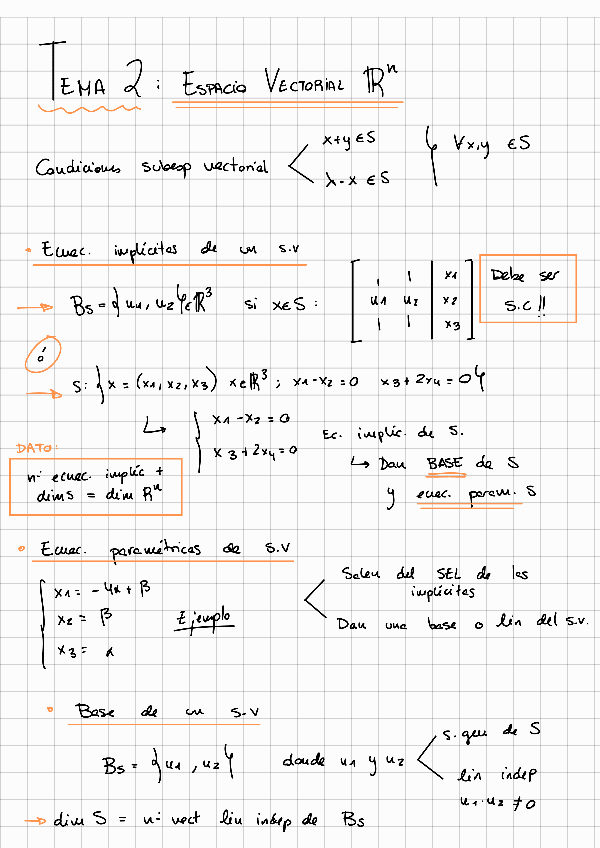 TEMA 2: ESPACIO VECTORIAL ℝⁿ
Condiciones subesp vectorial
x+y ∈ S
λ·x ∈ S
∀x,y ∈ S
• Ecuac. implícitas de un s.v
→ Bs = {u1, u2} ∈ ℝ³ si x∈S:
| | x1
u1 u2 x2
| | x3
Debe ser
S.C!!
ó
→ S: {x = (x1, x2, x3) x∈ℝ³; x1-x2=0 x3+2x4=0}
↳ { x1-x2=0
x3+2x4=0
Ec. implíc. de S.
↳ Dan BASE de S
y ecuac. param. S
DATO:
nº ecuac. implíc +
dim S = dim ℝⁿ
• Ecuac. paramétricas de s.v
x1 = -4α + β
x2 = β
x3 = α
Ejemplo
Salen del SEL de las
implícitas
Dan una base o lin del s.v.
• Base de un s.v
Bs = {u1, u2} donde u1 y u2
s. gen de S
lin indep
u1·u2 ≠ 0
→ dim S = nº vect lin indep de Bs